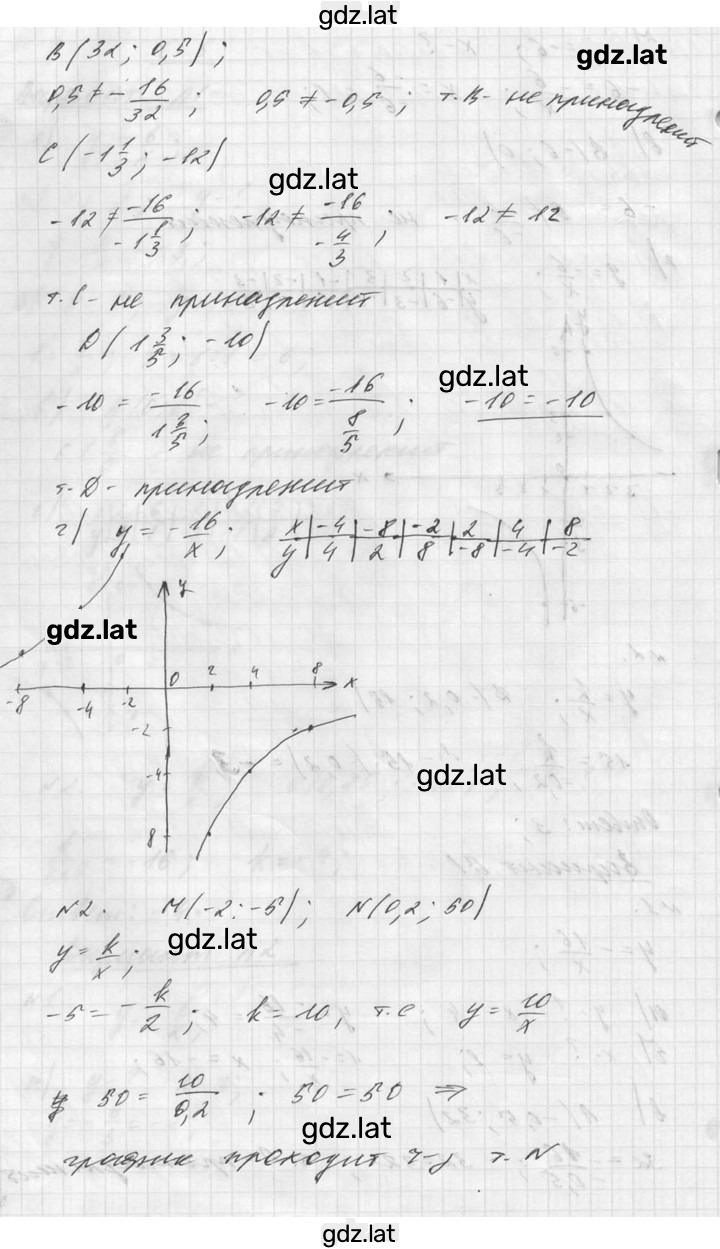 gdz.lat
B(32; 0,5);
gdz.lat
0,5 ≠ -16/32; 0,5 ≠ -0,5; т.В - не принадлежит
C(-1 1/3; -12)
gdz.lat
-12 ≠ -16/(-1 1/3); -12 ≠ -16/(-4/3); -12 ≠ 12
т.С - не принадлежит
D(1 3/5; -10)
gdz.lat
-10 = -16/(1 3/5); -10 = -16/(8/5); -10 = -10
т.D - принадлежит
г) y = -16/x; x | -4 | -8 | -2 | 2 | 4 | 8
y | 4 | 2 | 8 | -8 | -4 | -2
y
gdz.lat
0 2 4 8 x
-8 -4 -2
-2
-4
gdz.lat
8
N2. M(-2; -5); N(0,2; 50)
gdz.lat
y = k/x;
-5 = -k/2; k = 10, т.е y = 10/x
50 = 10/0,2; 50 = 50 ⇒
gdz.lat
график проходит ч-з т. N
gdz.lat